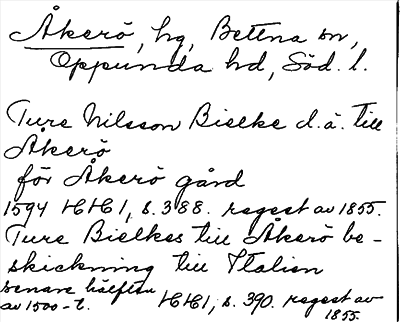 Åkerö, hg, Bettna sn,
Oppunda hd, Söd. l.
Ture Nilsson Bielke d.ä. till
Åkerö
för Åkerö gård
1594 HH1, s. 388. regest av 1855.
Ture Bielkes till Åkerö be-
skickning till Italien
senare hälften
av 1500-t. HH1, s. 390. regest av
1855.